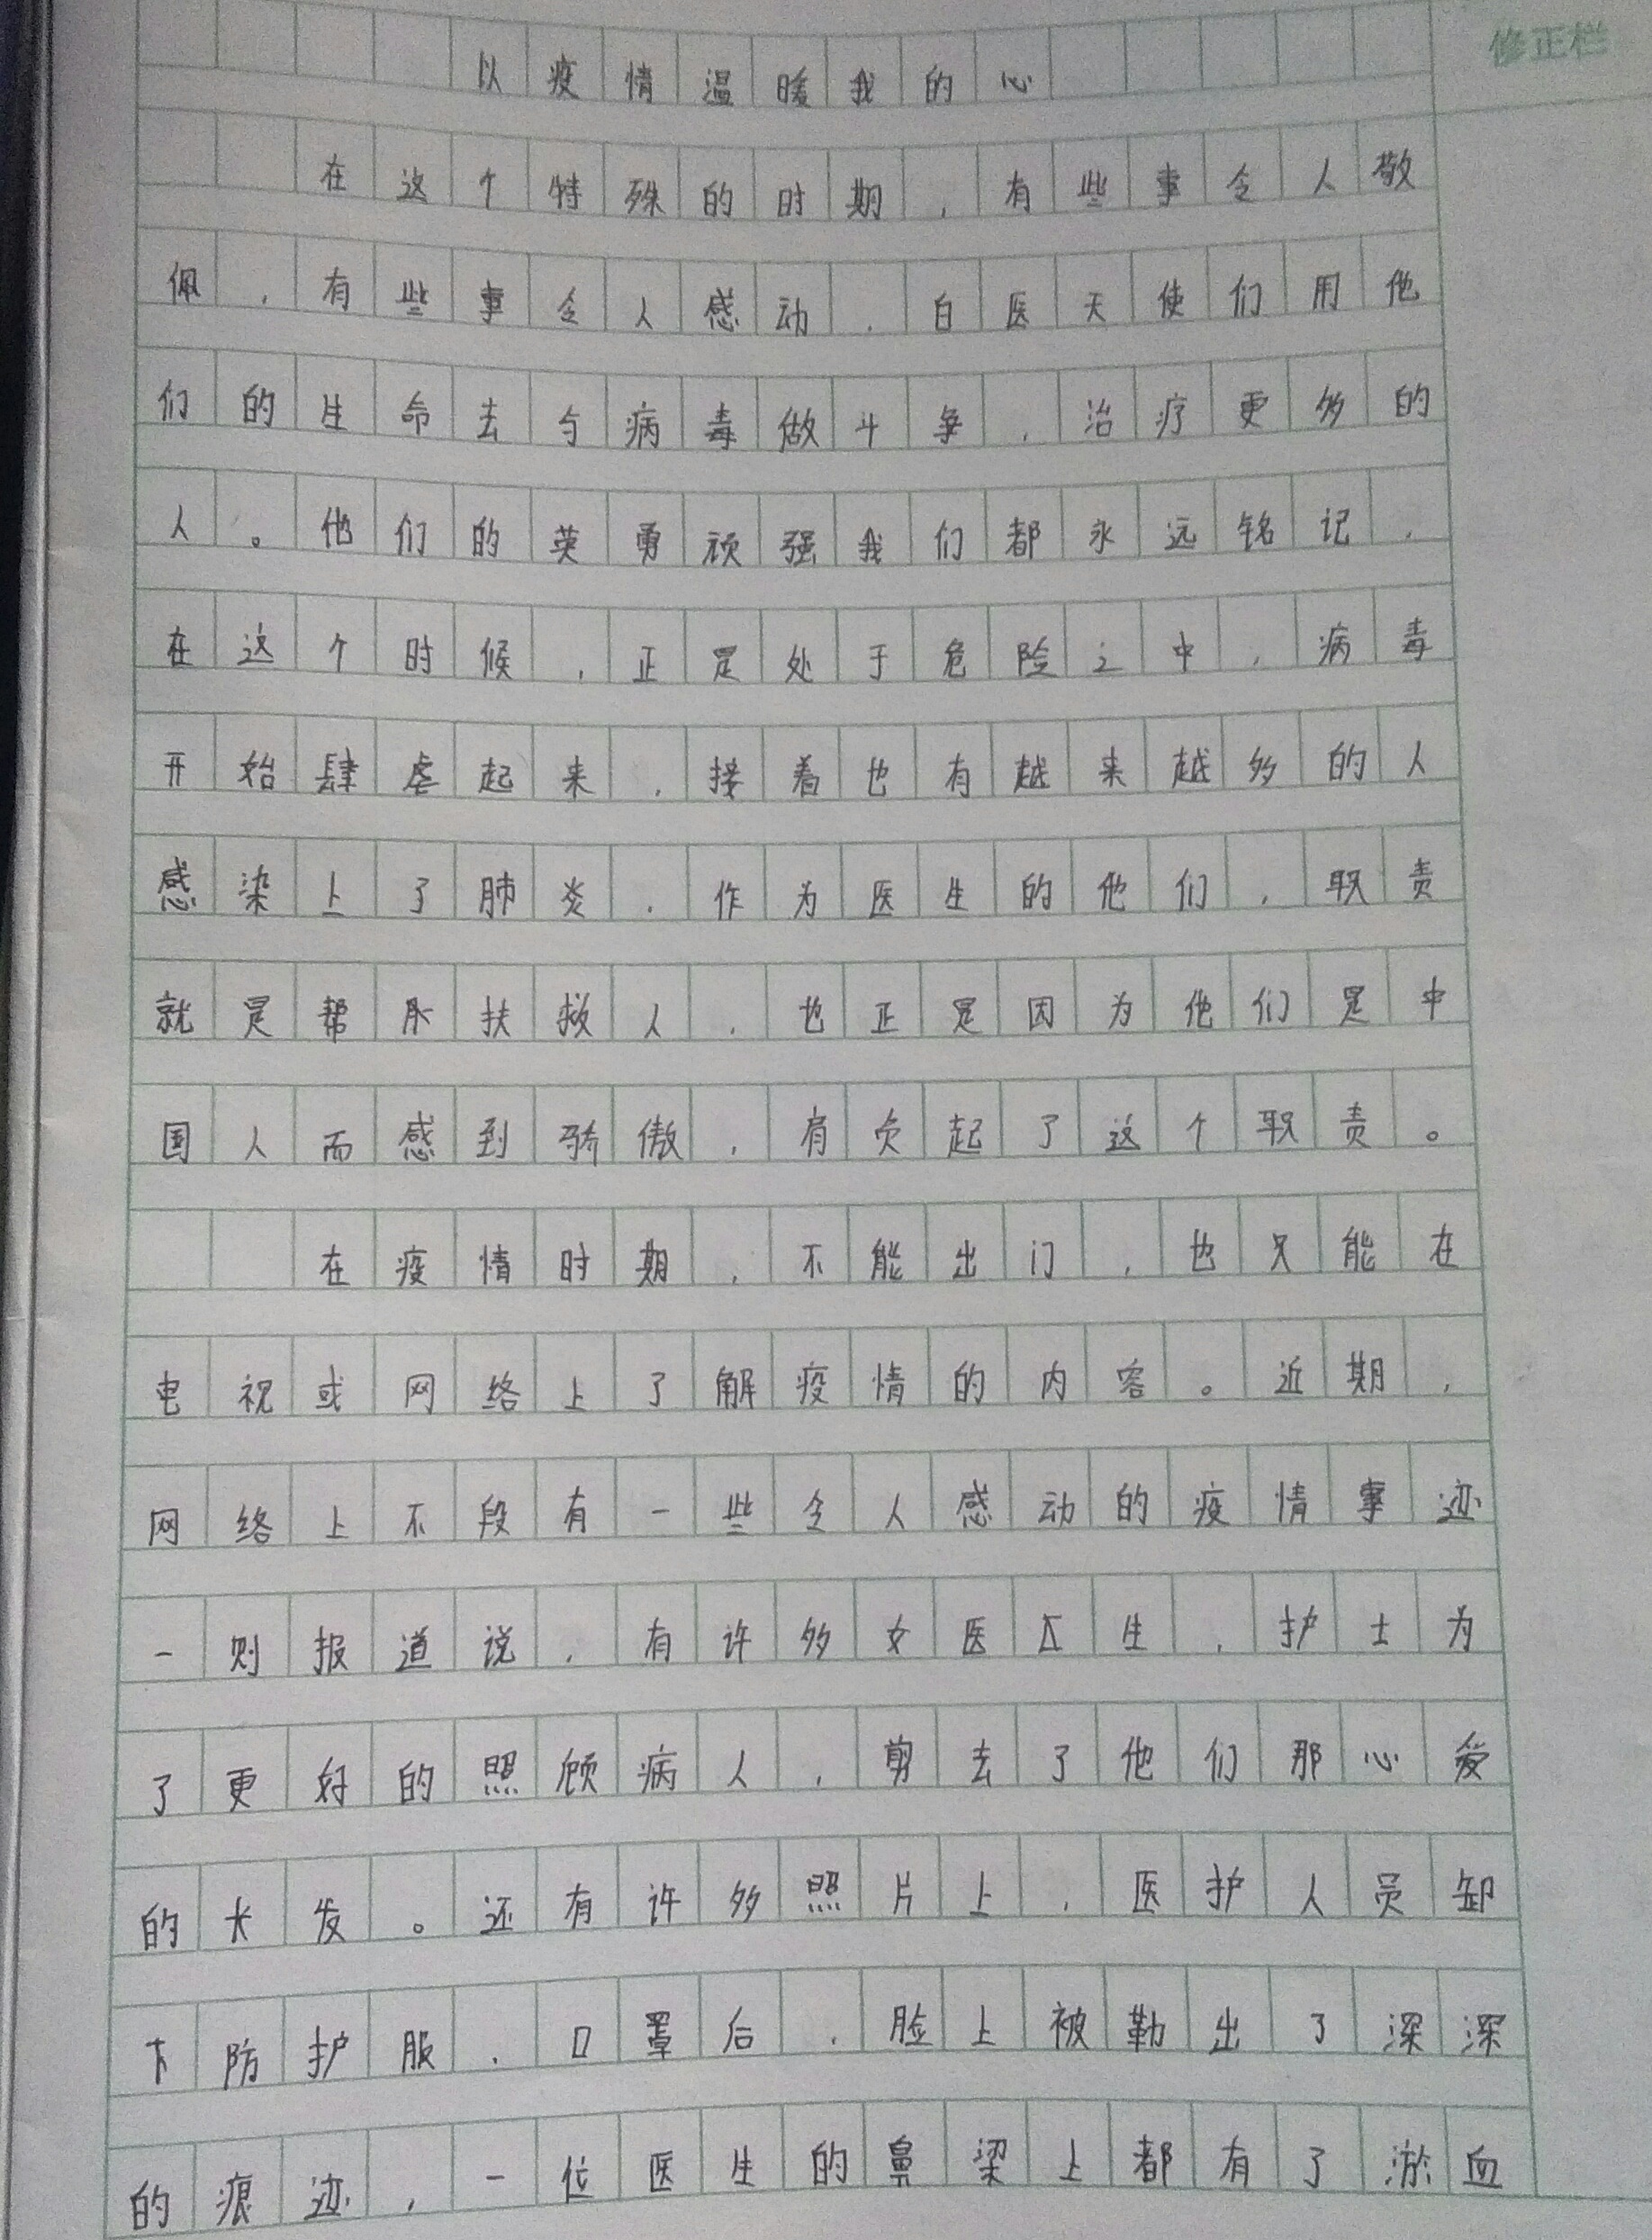 修正栏
以疫情温暖我的心
在这个特殊的时期,有些事令人敬
佩,有些事令人感动,白医天使们用他
们的生命去与病毒做斗争,治疗更多的
人。他们的英勇顽强我们都永远铭记,
在这个时候,正是处于危险之中,病毒
开始肆虐起来,接着也有越来越多的人
感染上了肺炎,作为医生的他们,职责
就是帮扶救人,也正是因为他们是中
国人而感到骄傲,肩负起了这个职责。
在疫情时期,不能出门,也只能在
电视或网络上了解疫情的内容。近期,
网络上不段有一些令人感动的疫情事迹
一则报道说,有许多女医生,护士为
了更好的照顾病人,剪去了他们那心爱
的长发。还有许多照片上,医护人员卸
下防护服,口罩后,脸上被勒出了深深
的痕迹,一位医生的鼻梁上都有了淤血